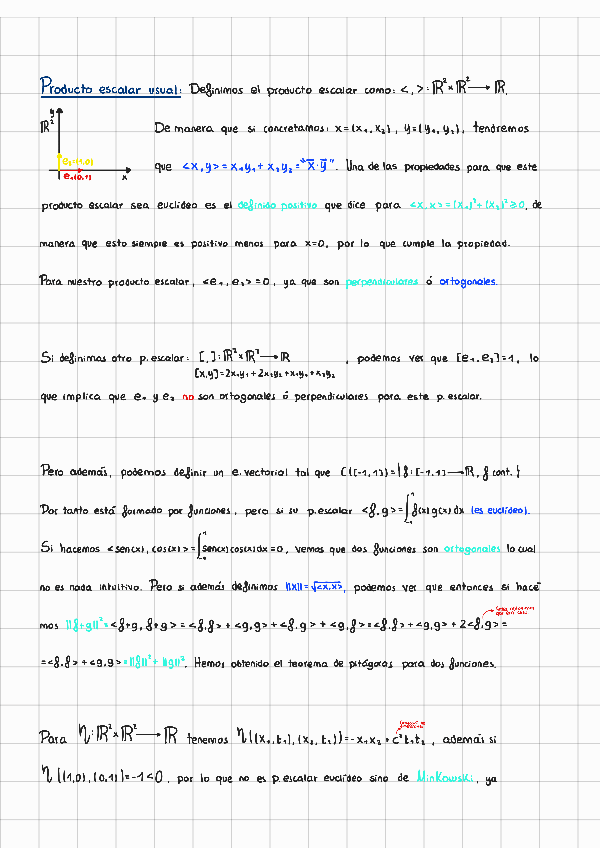 Producto escalar usual: Definimos el producto escalar como: <,>: ℝ²×ℝ² → ℝ.
y
ℝ²
e₂=(1,0)
e₁(0,1)
x
De manera que si concretamos: x=(x₁,x₂), y=(y₁,y₂), tendremos
que <x,y> = x₁y₁ + x₂y₂ = "x̄·ȳ". Una de las propiedades para que este
producto escalar sea euclídeo es el definido positivo que dice para <x,x> = (x₁)²+(x₂)² ≥ 0, de
manera que esto siempre es positivo menos para x=0, por lo que cumple la propiedad.
Para nuestro producto escalar, <e₁,e₂> = 0, ya que son perpendiculares ó ortogonales.
Si definimos otro p.escalar: [,]: ℝ²×ℝ² → ℝ , podemos ver que [e₁,e₂]=1, lo
[x,y]=2x₁y₁+2x₂y₂+x₁y₂+x₂y₂
que implica que e₁ y e₂ no son ortogonales ó perpendiculares para este p.escalar.
Pero además, podemos definir un e.vectorial tal que C([-1,1])={f:[-1,1] → ℝ, f cont.}
Por tanto está formado por funciones, pero si su p.escalar <f,g> = ∫₋₁¹ f(x)g(x)dx (es euclídeo).
Si hacemos <sen(x), cos(x)> = ∫₋₁¹ sen(x)cos(x)dx = 0, vemos que dos funciones son ortogonales lo cual
no es nada intuitivo. Pero si además definimos ||x||=√<x,x>, podemos ver que entonces si hace
mos ||f+g||² = <f+g, f+g> = <f,f> + <g,g> + <f,g> + <g,f> = <f,f> + <g,g> + 2<f,g> =
= <f,f> + <g,g> = ||f||² + ||g||². Hemos obtenido el teorema de pitágoras para dos funciones.
Para η: ℝ²×ℝ² → ℝ tenemos η((x₁,t₁),(x₂,t₂)) = -x₁x₂ + c²t₁t₂, además si
η((1,0),(0,1)) = -1<0, por lo que no es p.escalar euclídeo sino de Minkowski, ya